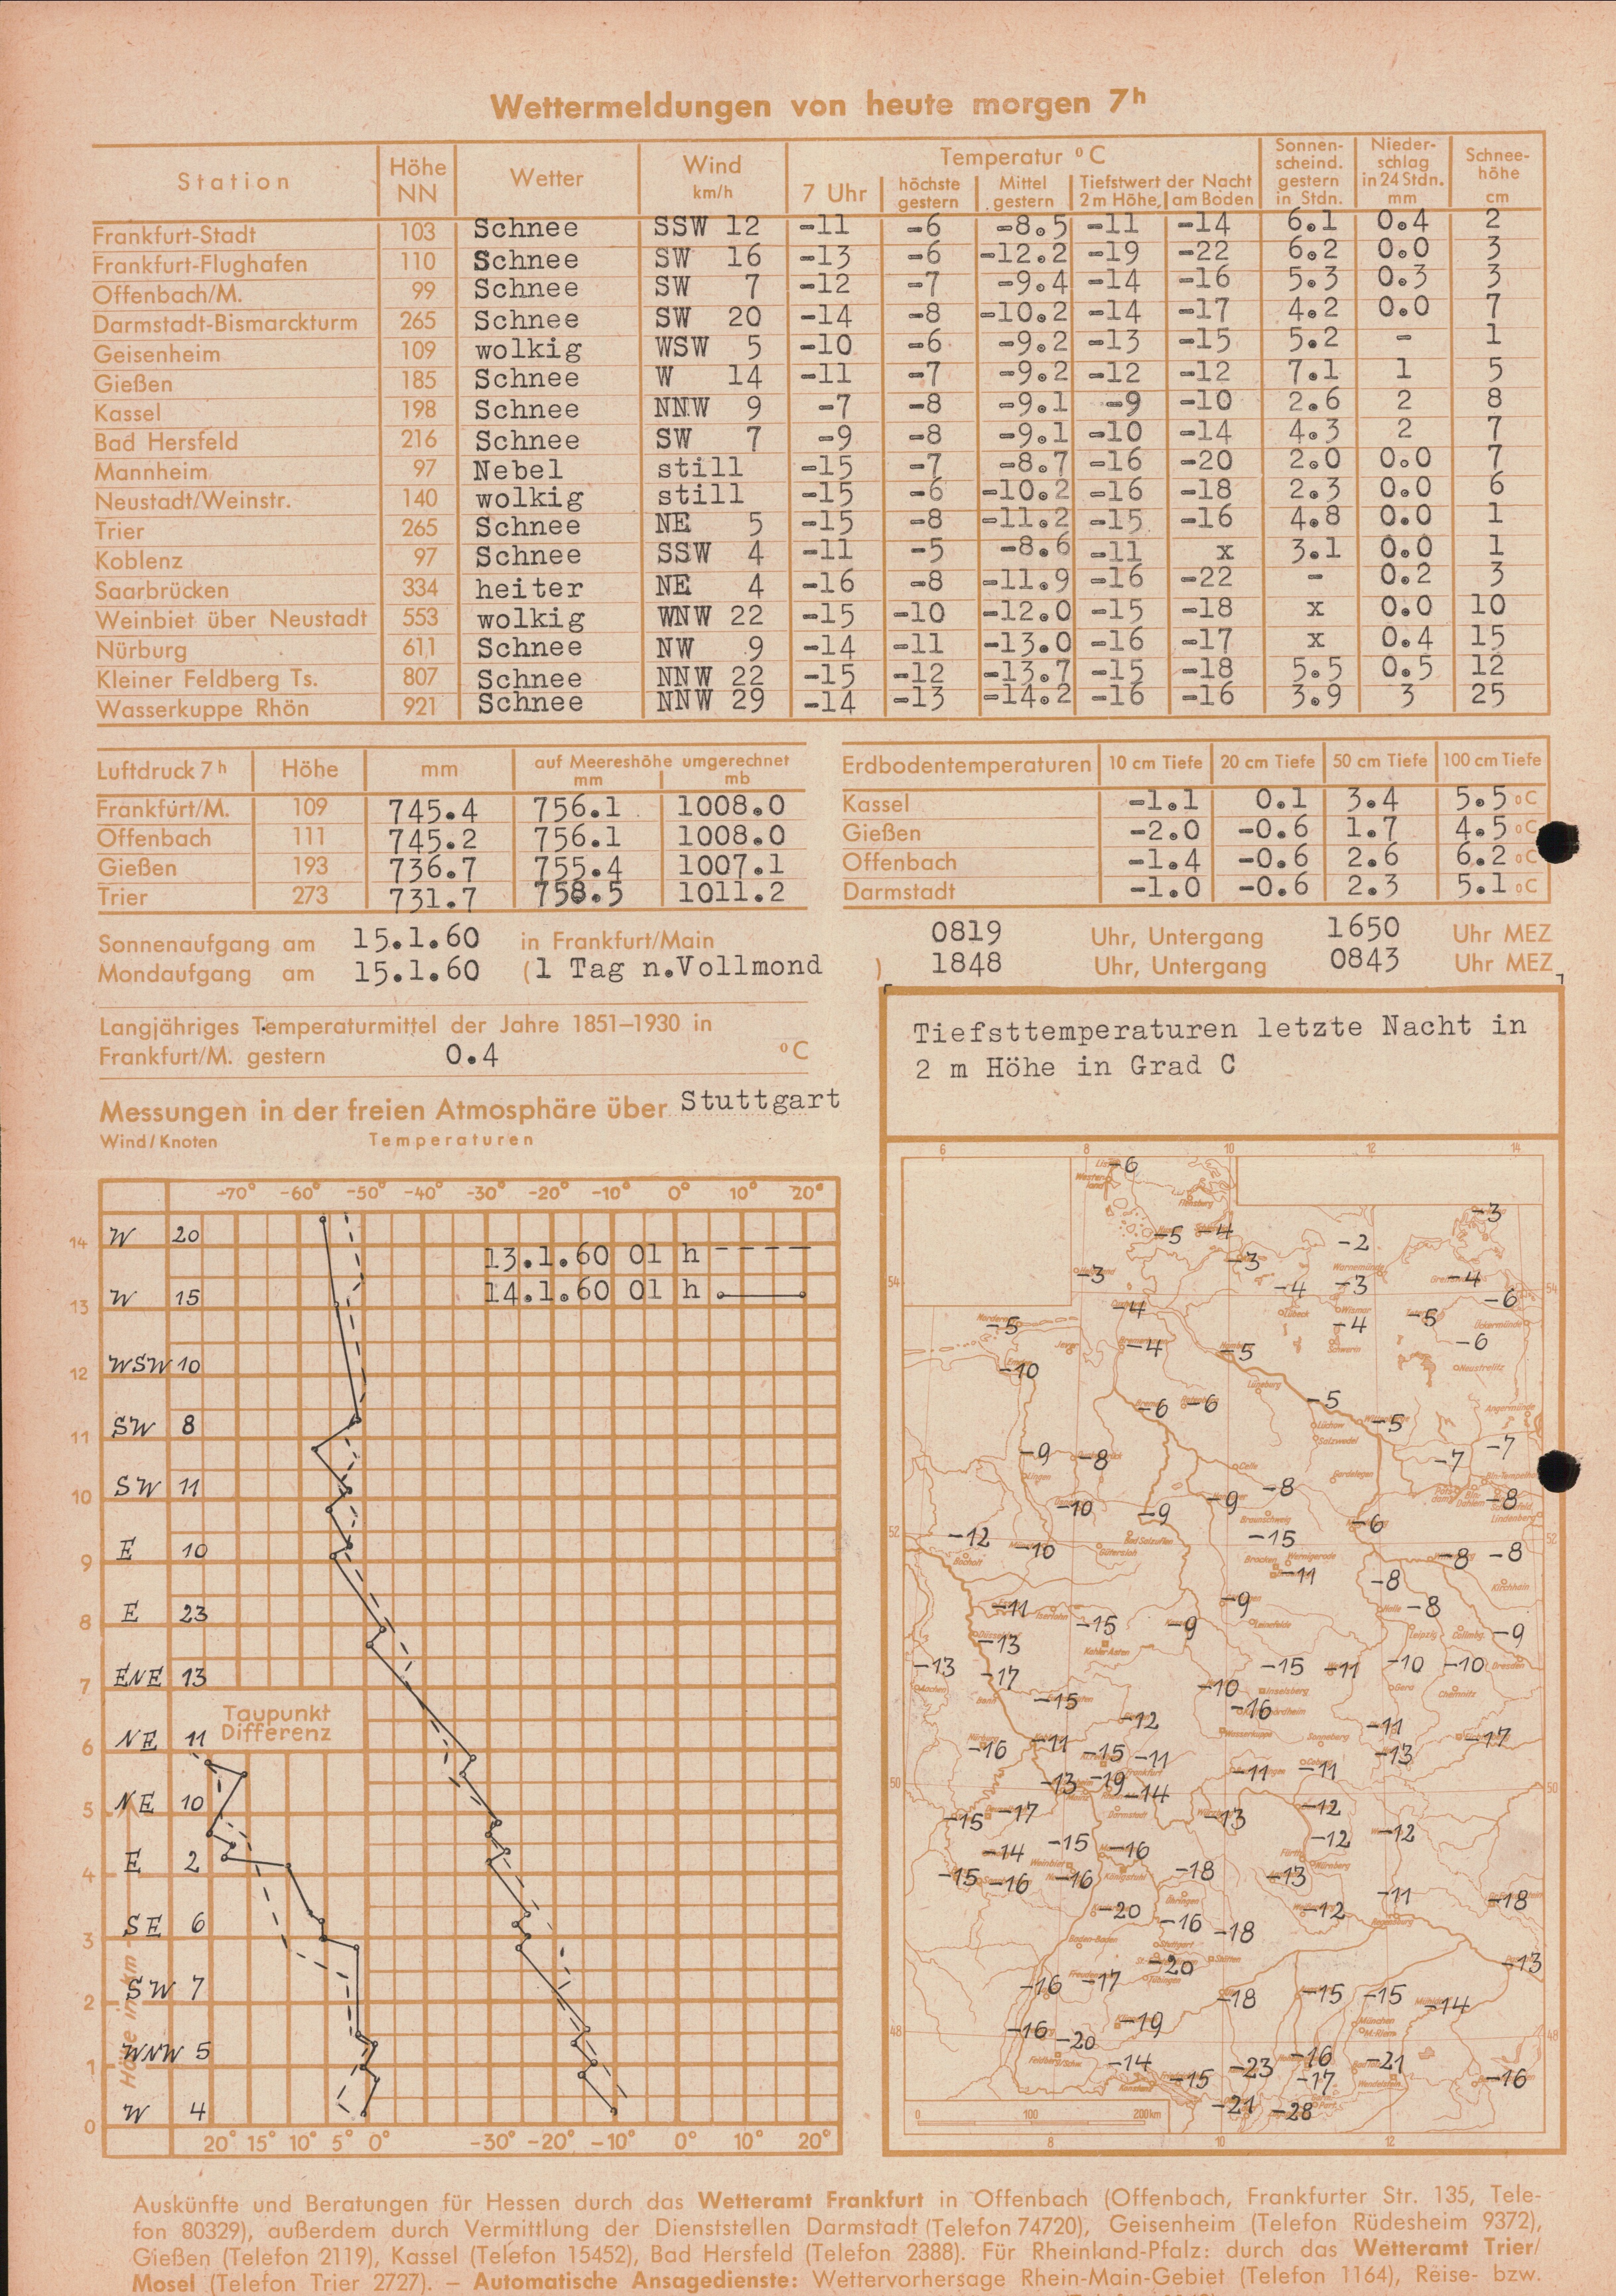 Wettermeldungen von heute morgen 7h
Station Höhe NN Wetter Wind km/h Temperatur °C Sonnenscheind. gestern in Stdn. Niederschlag in 24 Stdn. mm Schneehöhe cm
7 Uhr höchste gestern Mittel gestern Tiefstwert der Nacht 2 m Höhe, am Boden
Frankfurt-Stadt 103 Schnee SSW 12 -11 -6 -8.5 -11 -14 6.1 0.4 2
Frankfurt-Flughafen 110 Schnee SW 16 -13 -6 -12.2 -19 -22 6.2 0.0 3
Offenbach/M. 99 Schnee SW 7 -12 -7 -9.4 -14 -16 5.3 0.3 3
Darmstadt-Bismarckturm 265 Schnee SW 20 -14 -8 -10.2 -14 -17 4.2 0.0 7
Geisenheim 109 wolkig WSW 5 -10 -6 -9.2 -13 -15 5.2 - 1
Gießen 185 Schnee W 14 -11 -7 -9.2 -12 -12 7.1 1 5
Kassel 198 Schnee NNW 9 -7 -8 -9.1 -9 -10 2.6 2 8
Bad Hersfeld 216 Schnee SW 7 -9 -8 -9.1 -10 -14 4.3 2 7
Mannheim 97 Nebel still -15 -7 -8.7 -16 -20 2.0 0.0 7
Neustadt/Weinstr. 140 wolkig still -15 -6 -10.2 -16 -18 2.3 0.0 6
Trier 265 Schnee NE 5 -15 -8 -11.2 -15 -16 4.8 0.0 1
Koblenz 97 Schnee SSW 4 -11 -5 -8.6 -11 x 3.1 0.0 1
Saarbrücken 334 heiter NE 4 -16 -8 -11.9 -16 -22 - 0.2 3
Weinbiet über Neustadt 553 wolkig WNW 22 -15 -10 -12.0 -15 -18 x 0.0 10
Nürburg 611 Schnee NW 9 -14 -11 -13.0 -16 -17 x 0.4 15
Kleiner Feldberg Ts. 807 Schnee NNW 22 -15 -12 -13.7 -15 -18 5.5 0.5 12
Wasserkuppe Rhön 921 Schnee NNW 29 -14 -13 -14.2 -16 -16 3.9 3 25
Luftdruck 7h Höhe mm auf Meereshöhe umgerechnet mm mb
Frankfurt/M. 109 745.4 756.1 1008.0
Offenbach 111 745.2 756.1 1008.0
Gießen 193 736.7 755.4 1007.1
Trier 273 731.7 758.5 1011.2
Erdbodentemperaturen 10 cm Tiefe 20 cm Tiefe 50 cm Tiefe 100 cm Tiefe
Kassel -1.1 0.1 3.4 5.5 °C
Gießen -2.0 -0.6 1.7 4.5 °C
Offenbach -1.4 -0.6 2.6 6.2 °C
Darmstadt -1.0 -0.6 2.3 5.1 °C
Sonnenaufgang am 15.1.60 in Frankfurt/Main 0819 Uhr, Untergang 1650 Uhr MEZ
Mondaufgang am 15.1.60 (1 Tag n.Vollmond ) 1848 Uhr, Untergang 0843 Uhr MEZ
Langjähriges Temperaturmittel der Jahre 1851–1930 in
Frankfurt/M. gestern 0.4 °C
Messungen in der freien Atmosphäre über Stuttgart
Wind/Knoten Temperaturen
-70° -60° -50° -40° -30° -20° -10° 0° 10° 20°
14 W 20
13.1.60 01 h
14.1.60 01 h
13 W 15
12 WSW 10
11 SW 8
10 SW 11
9 E 10
8 E 23
7 ENE 13
Taupunkt Differenz
6 NE 11
5 NE 10
4 E 2
3 SE 6
2 SW 7
1 WNW 5
0 W 4
Höhe in km
20° 15° 10° 5° 0° -30° -20° -10° 0° 10° 20°
Tiefsttemperaturen letzte Nacht in
2 m Höhe in Grad C
6 8 10 12 14
-6
-3
-5 -4 -2
-3 -3
-4 -3 -4
54 54
-4 -6
-5 -4 -5
-4 -5 -6
-10
-5
-6 -6 -5
-9 -8 -7 -7
-8
-10 -9 -9 -8
52 -12 -10 -15 -6 52
-11 -8 -8
-8
-11 -15 -9 -9 -8
-13 -9
-13 -17 -15 -11 -10 -10
-15 -10
-12 -16 -11 -17
-16 -11 -15 -11 -13
50 -13 -19 -14 -11 -11 50
-15 -17 -13 -12
-14 -15 -16 -12 -12
-15 -16 -16 -18 -13
-20 -16 -18 -12 -11 -18
-20 -13
-16 -17 -18 -15 -15 -14
48 -16 -20 -19 48
-14 -15 -23 -16 -21
-17 -16
-21 -28
0 100 200km
8 10 12
Auskünfte und Beratungen für Hessen durch das Wetteramt Frankfurt in Offenbach (Offenbach, Frankfurter Str. 135, Tele-
fon 80329), außerdem durch Vermittlung der Dienststellen Darmstadt (Telefon 74720), Geisenheim (Telefon Rüdesheim 9372),
Gießen (Telefon 2119), Kassel (Telefon 15452), Bad Hersfeld (Telefon 2388). Für Rheinland-Pfalz: durch das Wetteramt Trier/
Mosel (Telefon Trier 2727). – Automatische Ansagedienste: Wettervorhersage Rhein-Main-Gebiet (Telefon 1164), Reise- bzw.